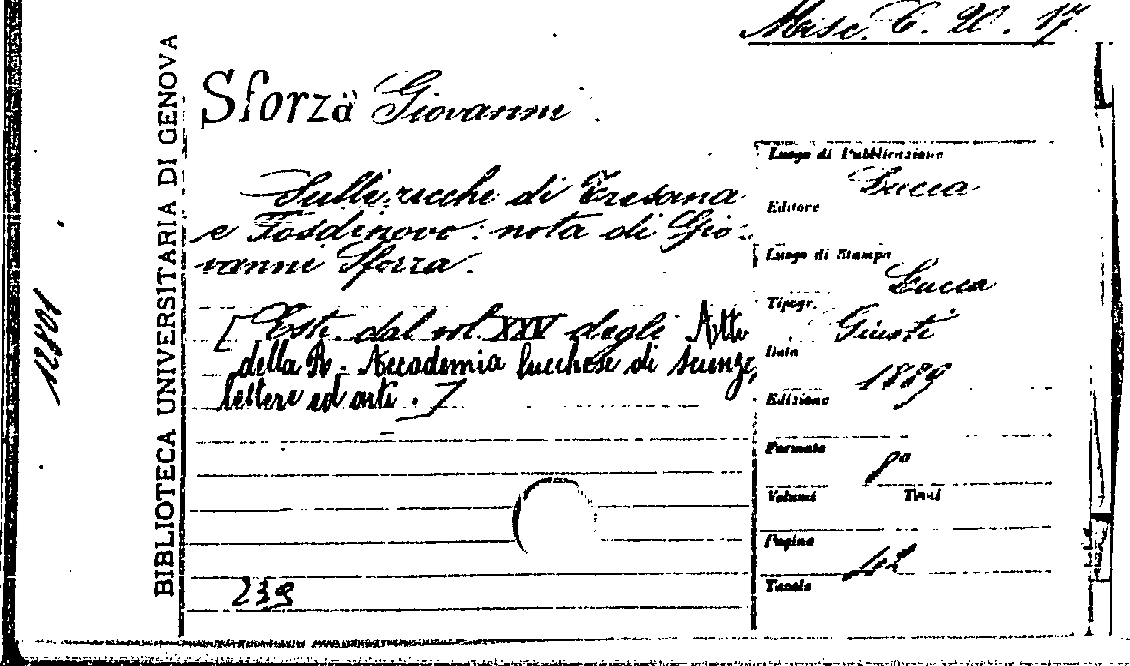 Misc. C. 20. 17
BIBLIOTECA UNIVERSITARIA DI GENOVA
Sforza Giovanni
Sulle zecche di Tresana
e Fosdinovo: nota di Gio-
vanni Sforza.
[Estr. dal vol XXIV degli Atti
della R. Accademia lucchese di scienze,
lettere ed arti.]
239
Luogo di Pubblicazione
Lucca
Editore
Luogo di Stampa
Lucca
Tipogr.
Giusti
Data
1889
Edizione
Formato
8°
Volumi Tomi
Pagine
42
Tavole